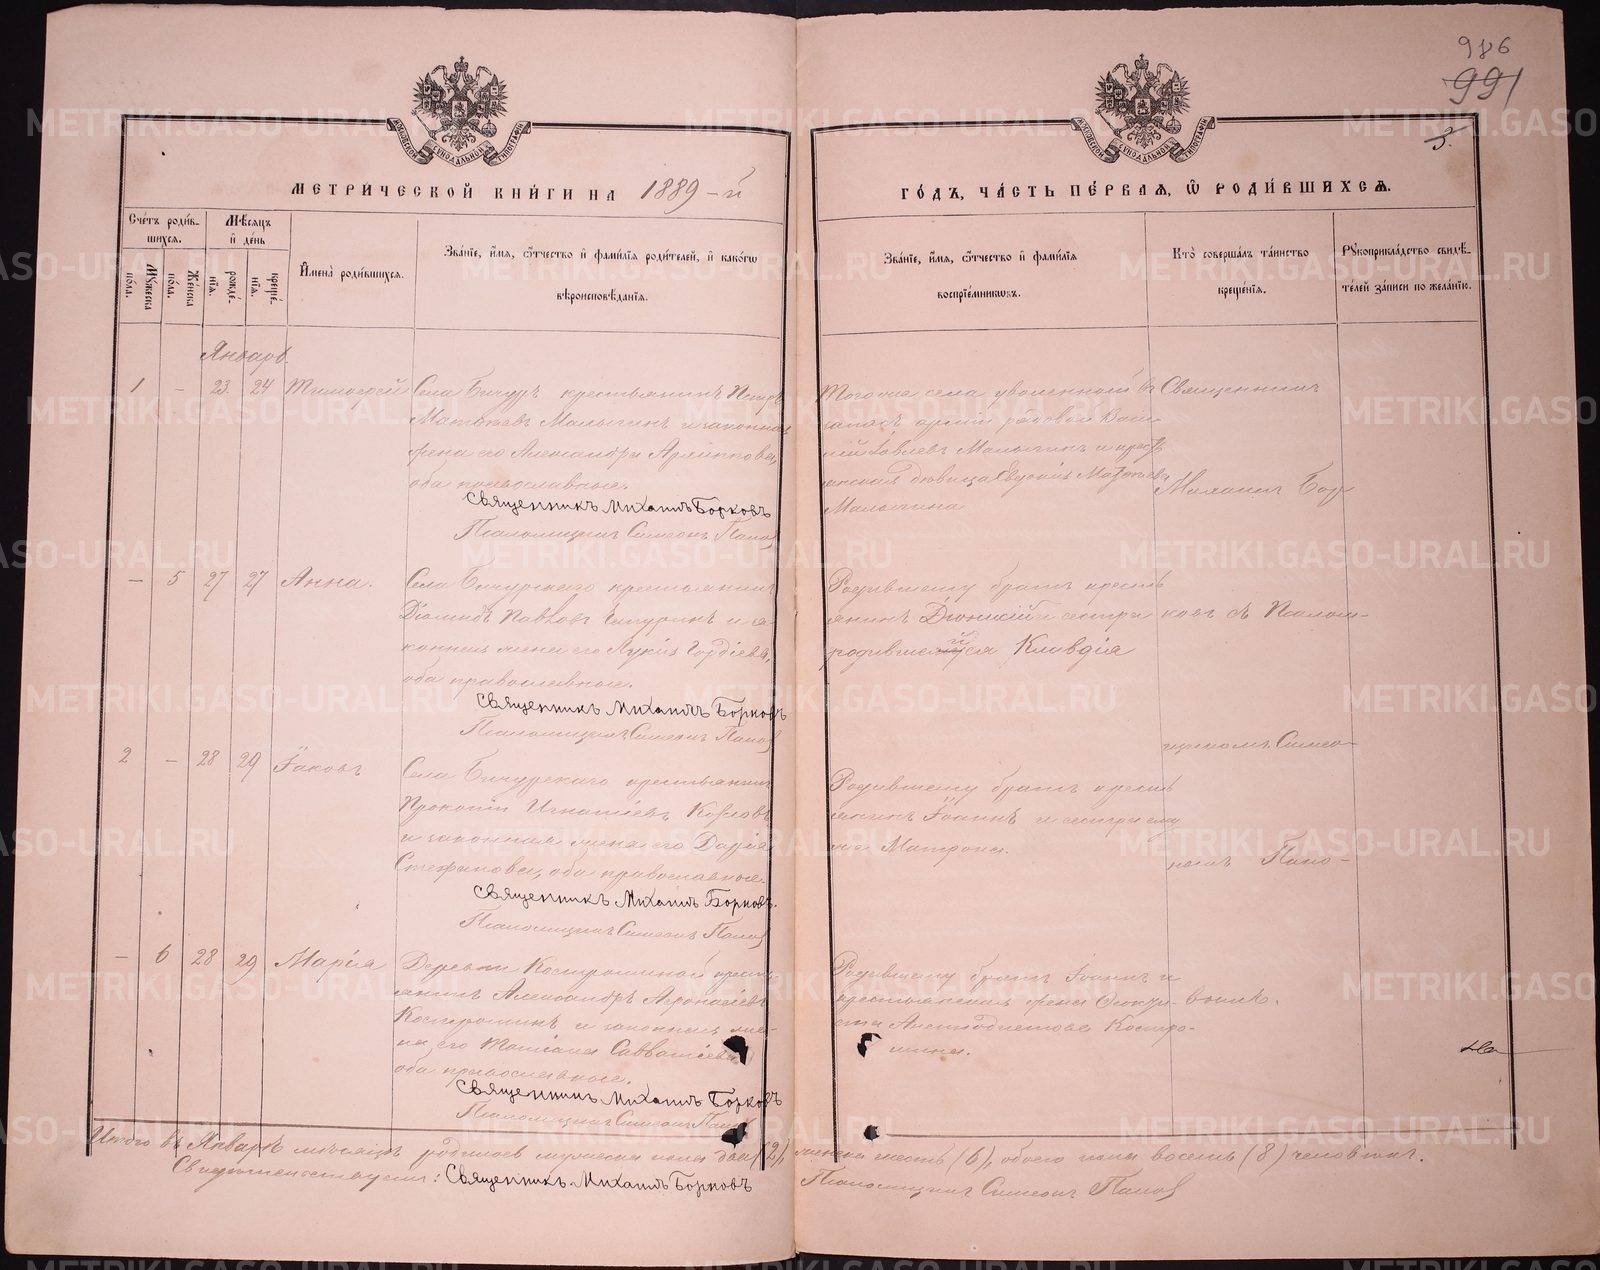 986
991
3.
МОСКОВСКОЙ СУНОДАЛЬНОЙ ТИПОГРАФІИ
МОСКОВСКОЙ СУНОДАЛЬНОЙ ТИПОГРАФІИ
МЕТРИ́ЧЕСКОЙ КНИ́ГИ НА 1889-й
ГО́ДЪ, ЧА́СТЬ ПЕ́РВАЯ, Ѡ РОДИ́ВШИХСѦ.
Сче́тъ роди́в-
шихся.
Мѣ́сяцъ
и҆ де́нь
Мꙋ́жеска
по́ла.
Же́нска
по́ла.
рожде́-
нїя.
креще́-
нїя.
И҆мена̀ роди́вшихся.
Зва́нїе, и҆́мя, ѻ҆́тчество и҆ фами́лїя роди́телей, и҆ како́гѡ
вѣроисповѣ́данїя.
Зва́нїе, и҆́мя, ѻ҆́тчество и҆ фами́лїя
воспрїе́мникѡвъ.
Кто̀ соверша́лъ та́инство
креще́нїя.
Рꙋкоприкла́дство свидѣ́-
телей за́писи по жела́нїю.
Январь.
1 - 23. 24 Тимофей
Села Бичурь крестьянинъ Петръ
Матѳеевъ Малыгинъ и законная
жена его Александра Архиппова,
оба православные.
Священникъ Михаилъ Борковъ
Псаломщикъ Симеонъ Папо
Тогоже села уволенный въ
запасъ арміи рядовой
Іовлевъ Малыгинъ и крест-
янская дѣвица Матѳеева
Малыгина
Священникъ
Михаилъ Бор-
- 5 27 27 Анна.
Села Бичурскаго крестьянинъ
Павловъ Бичуринъ и за-
конная жена его Лукія Гордіева,
оба православные.
Священникъ Михаилъ Борковъ
Псаломщикъ Симеонъ Папо
Родившему братъ кресть-
янинъ Діонисій и сестра
родившейся Клавдія
ковъ съ Псалом-
щикомъ Симео-
2 - 28 29 Іаковъ
Села Бичурскаго крестьянинъ
Прокопій Игнатіевъ Карповъ
и законная жена его Дарія
Стефанова, оба православные.
Священникъ Михаилъ Борковъ.
Псаломщикъ Симеонъ Папо
Родившему братъ кресть-
янинъ Іоаннъ и сестра ему
же Матрона.
номъ Папо-
- 6 28 29 Марія
Деревни Костроминой кресть-
янинъ Александръ Аѳанасіевъ
Костроминъ и законная же-
на его Татіана Савватіева,
оба православные.
Священникъ Михаилъ Борковъ
Псаломщикъ Симеонъ Папо
Родившему братъ Іоаннъ и
крестьянская жена
Анемподистова Костро-
мина.
вымъ.
Итого въ Январѣ мѣсяцѣ родилось мужеска пола два (2), женска шесть (6), обоего пола восемь (8) человѣкъ.
Свидѣтельствуемъ: Священникъ Михаилъ Борковъ
Псаломщикъ Симеонъ Папо
METRIKI.GASO-URAL.RU